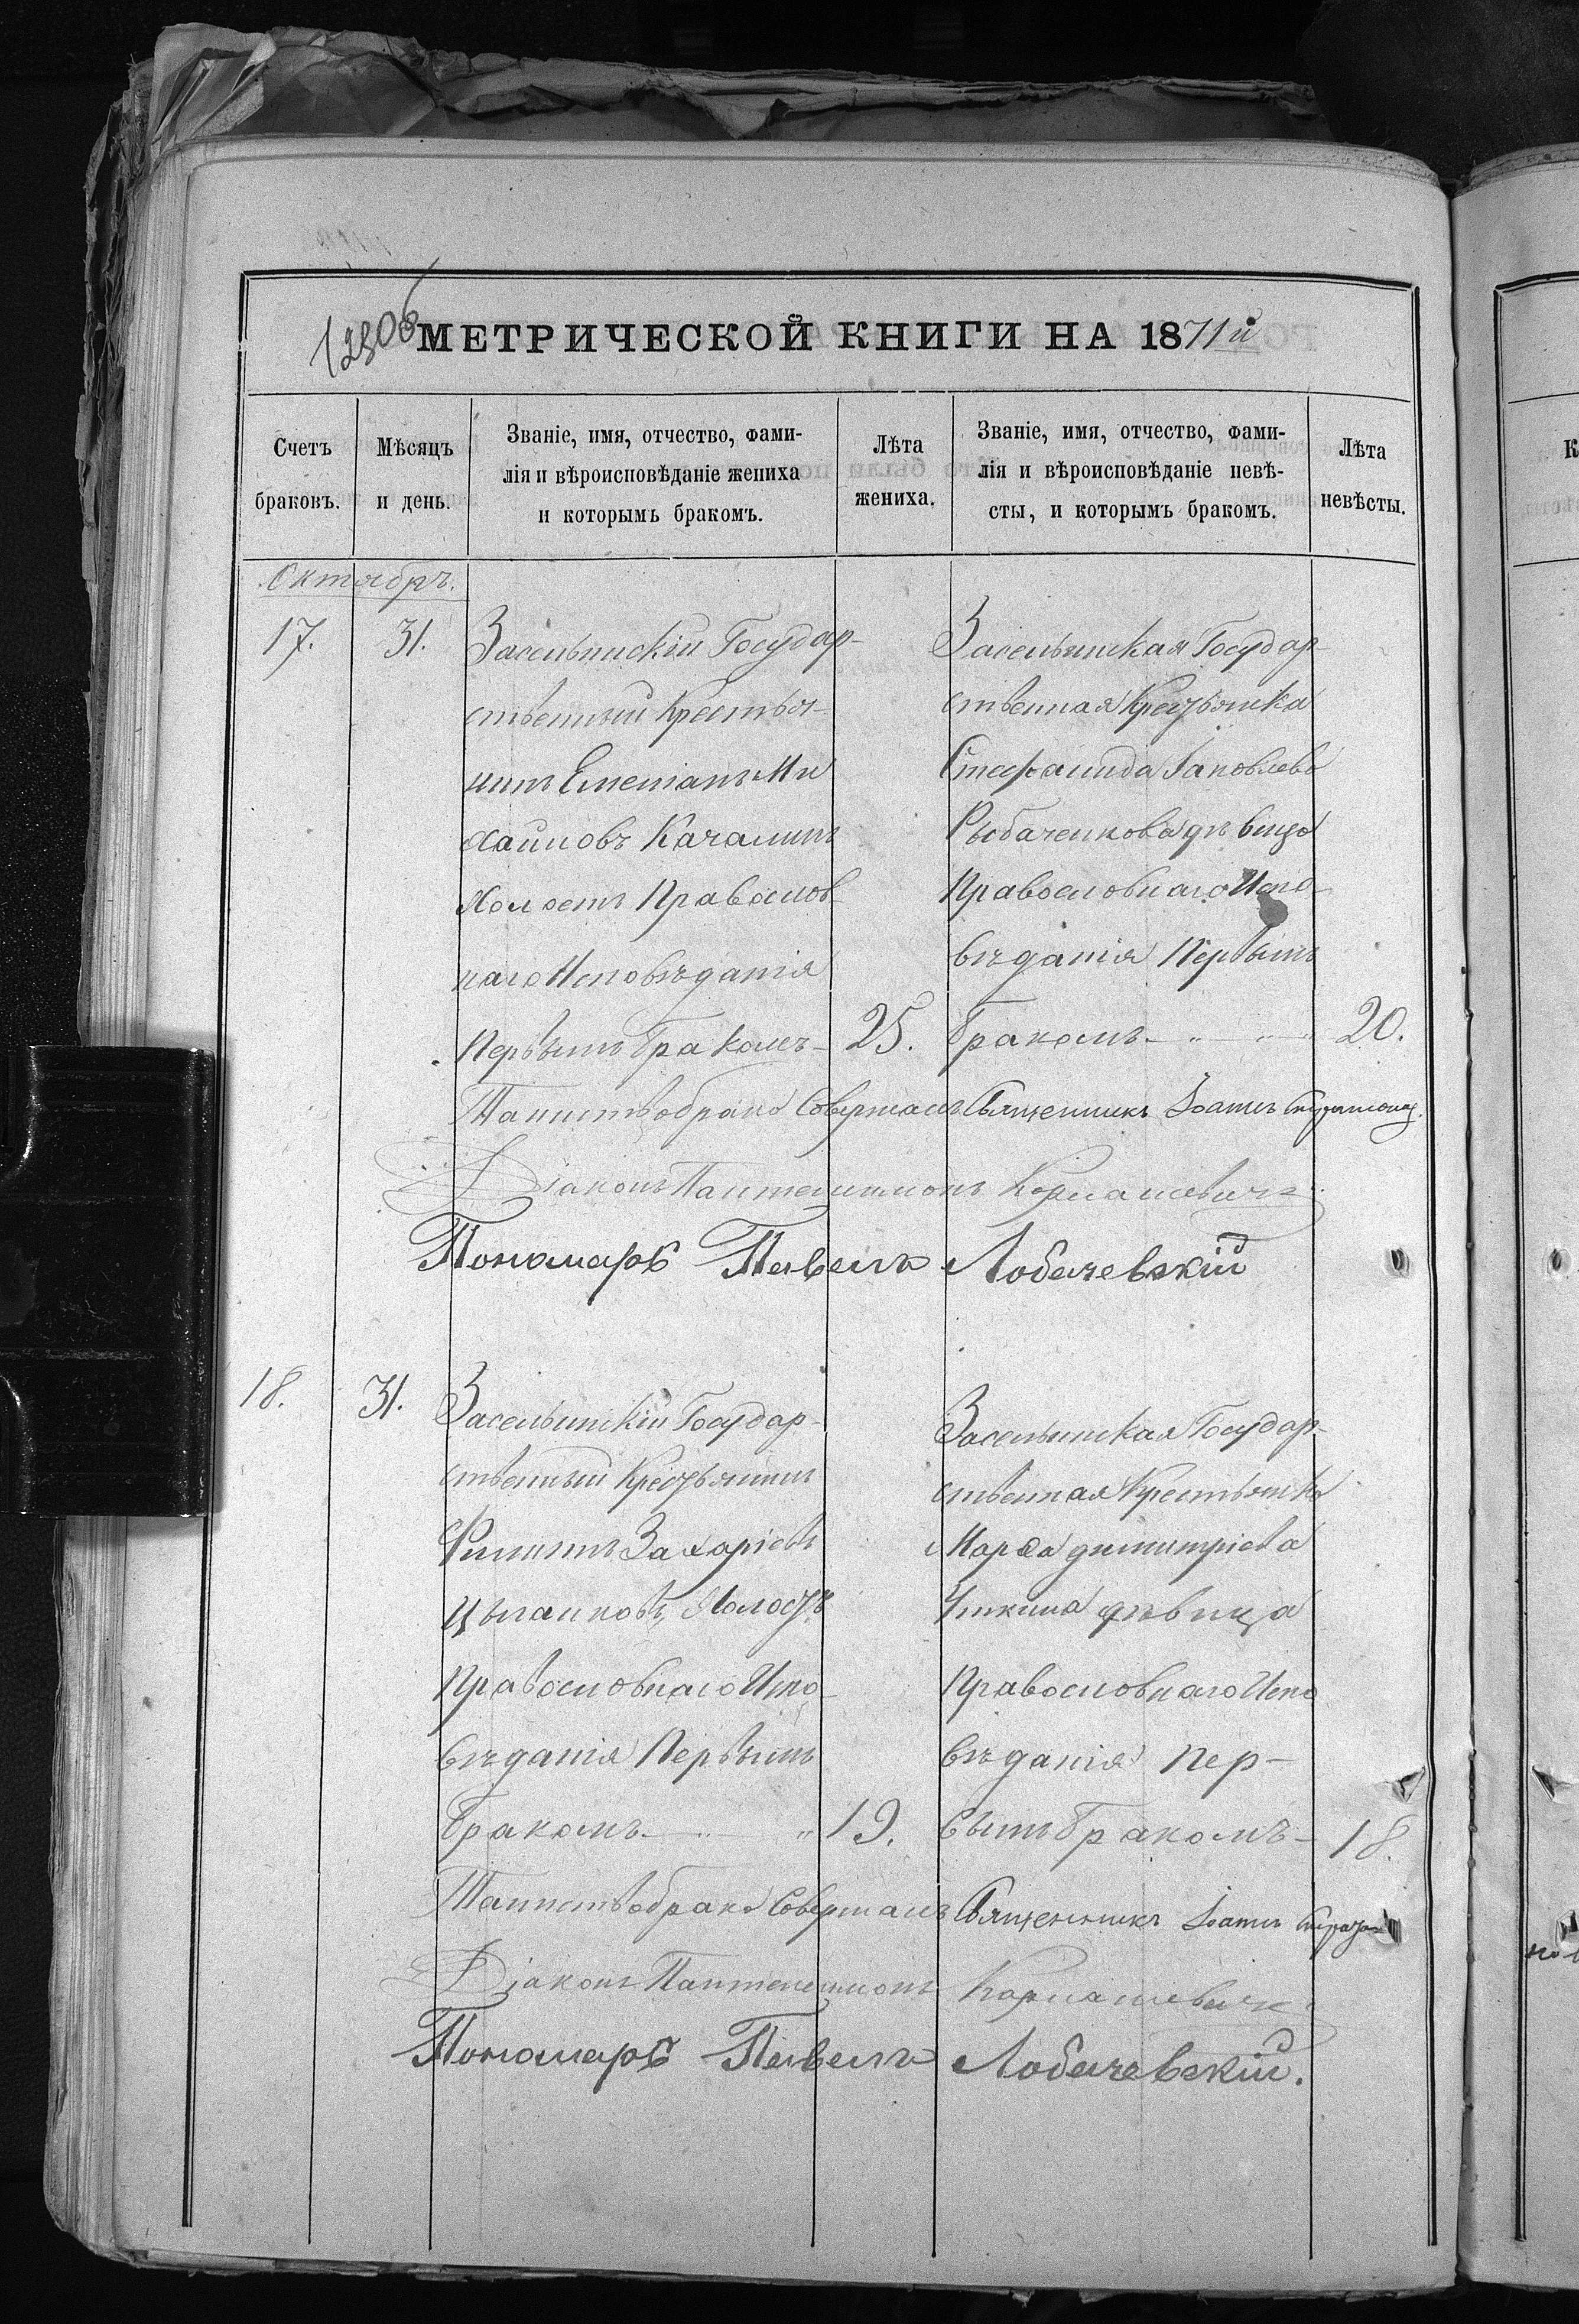 1230б
МЕТРИЧЕСКОЙ КНИГИ НА 1871й
Счетъ браковъ.
Мѣсяцъ и день.
Званіе, имя, отчество, фами-
лія и вѣроисповѣданіе жениха
и которымъ бракомъ.
Лѣта жениха.
Званіе, имя, отчество, фами-
лія и вѣроисповѣданіе невѣ-
сты, и которымъ бракомъ.
Лѣта невѣсты.
Октябрь.
17.
31.
Засельинскій Государ-
ственный Крестья-
нинъ Емеліанъ Ми
хайловъ Качалинъ
Холостъ Православ
наго Исповѣданія
Первымъ бракомъ-
25.
Засельинская Государ-
ственная Крестьянка
Стефанида Іаковлева
Рыбаченкова дѣвица
Православнаго Испо-
вѣданія Первымъ
бракомъ
20.
Таинство брака Совершалъ Священникъ Іоаннъ
Діаконъ Пантелеимонъ Кориашевичъ
Пономарь Павелъ Лобачевскій
18.
31.
Засельинскій Государ-
ственный Крестьянинъ
Филиппъ Захаріевъ
Цыганковъ, Холостъ
Православнаго Испо-
вѣданія Первымъ
бракомъ
19.
Засельинская Государ-
ственная Крестьянка
Марѳа Димитріева
Уткина дѣвица
Православнаго Испо
вѣданія Пер-
вымъ бракомъ-
18.
Таинство брака Совершалъ Священникъ Іоаннъ
Діаконъ Пантелеимонъ Кориашевичъ
Пономарь Павелъ Лобачевскій.